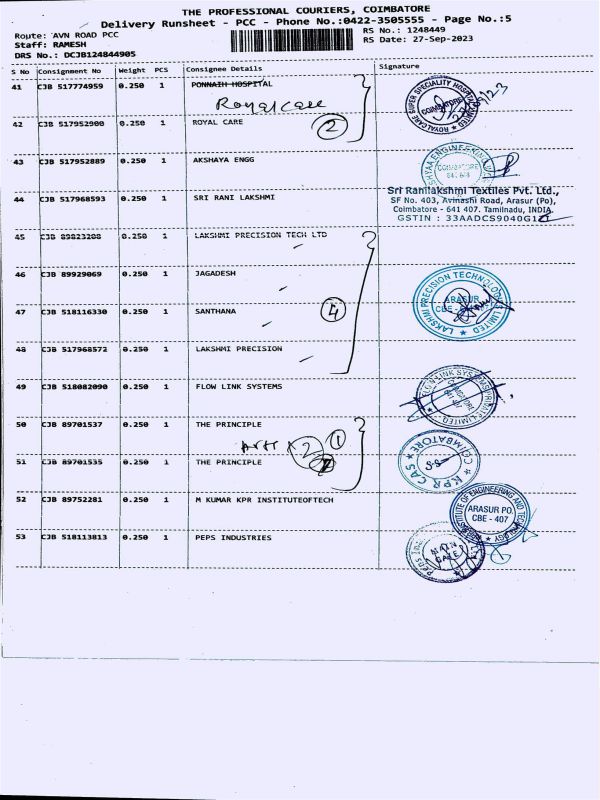 THE PROFESSIONAL COURIERS, COIMBATORE
Delivery Runsheet - PCC - Phone No.:0422-3505555 - Page No.:5
Route: AVN ROAD PCC RS No.: 1248449
Staff: RAMESH RS Date: 27-Sep-2023
DRS No.: DCJB124844905
S No Consignment No Weight PCS Consignee Details Signature
41 CJB 517774959 0.250 1 PONNAIH HOSPITAL
Royalcare
42 CJB 517952900 0.250 1 ROYAL CARE
2
ROYALCARE SUPER SPECIALITY HOSPITAL LIMITED
COIMBATORE
43 CJB 517952889 0.250 1 AKSHAYA ENGG
COIMBATORE
44 CJB 517968593 0.250 1 SRI RANI LAKSHMI
Sri Ranilakshmi Textiles Pvt. Ltd.,
SF No. 403, Avinashi Road, Arasur (Po),
Coimbatore - 641 407. Tamilnadu, INDIA.
GSTIN : 33AADCS9040G1
45 CJB 89823208 0.250 1 LAKSHMI PRECISION TECH LTD
46 CJB 89929069 0.250 1 JAGADESH
47 CJB 518116330 0.250 1 SANTHANA
4
48 CJB 517968572 0.250 1 LAKSHMI PRECISION
LAKSHMI PRECISION TECHNOLOGIES LIMITED
ARASUR
CBE -
49 CJB 518082090 0.250 1 FLOW LINK SYSTEMS
FLOW LINK SYSTEMS PRIVATE LIMITED
50 CJB 89701537 0.250 1 THE PRINCIPLE
2 1
51 CJB 89701535 0.250 1 THE PRINCIPLE
KPR CAS COIMBATORE
52 CJB 89752281 0.250 1 M KUMAR KPR INSTITUTEOFTECH
INSTITUTE OF ENGINEERING AND TECHNOLOGY
ARASUR PO,
CBE - 407
53 CJB 518113813 0.250 1 PEPS INDUSTRIES
MAIN
GATE